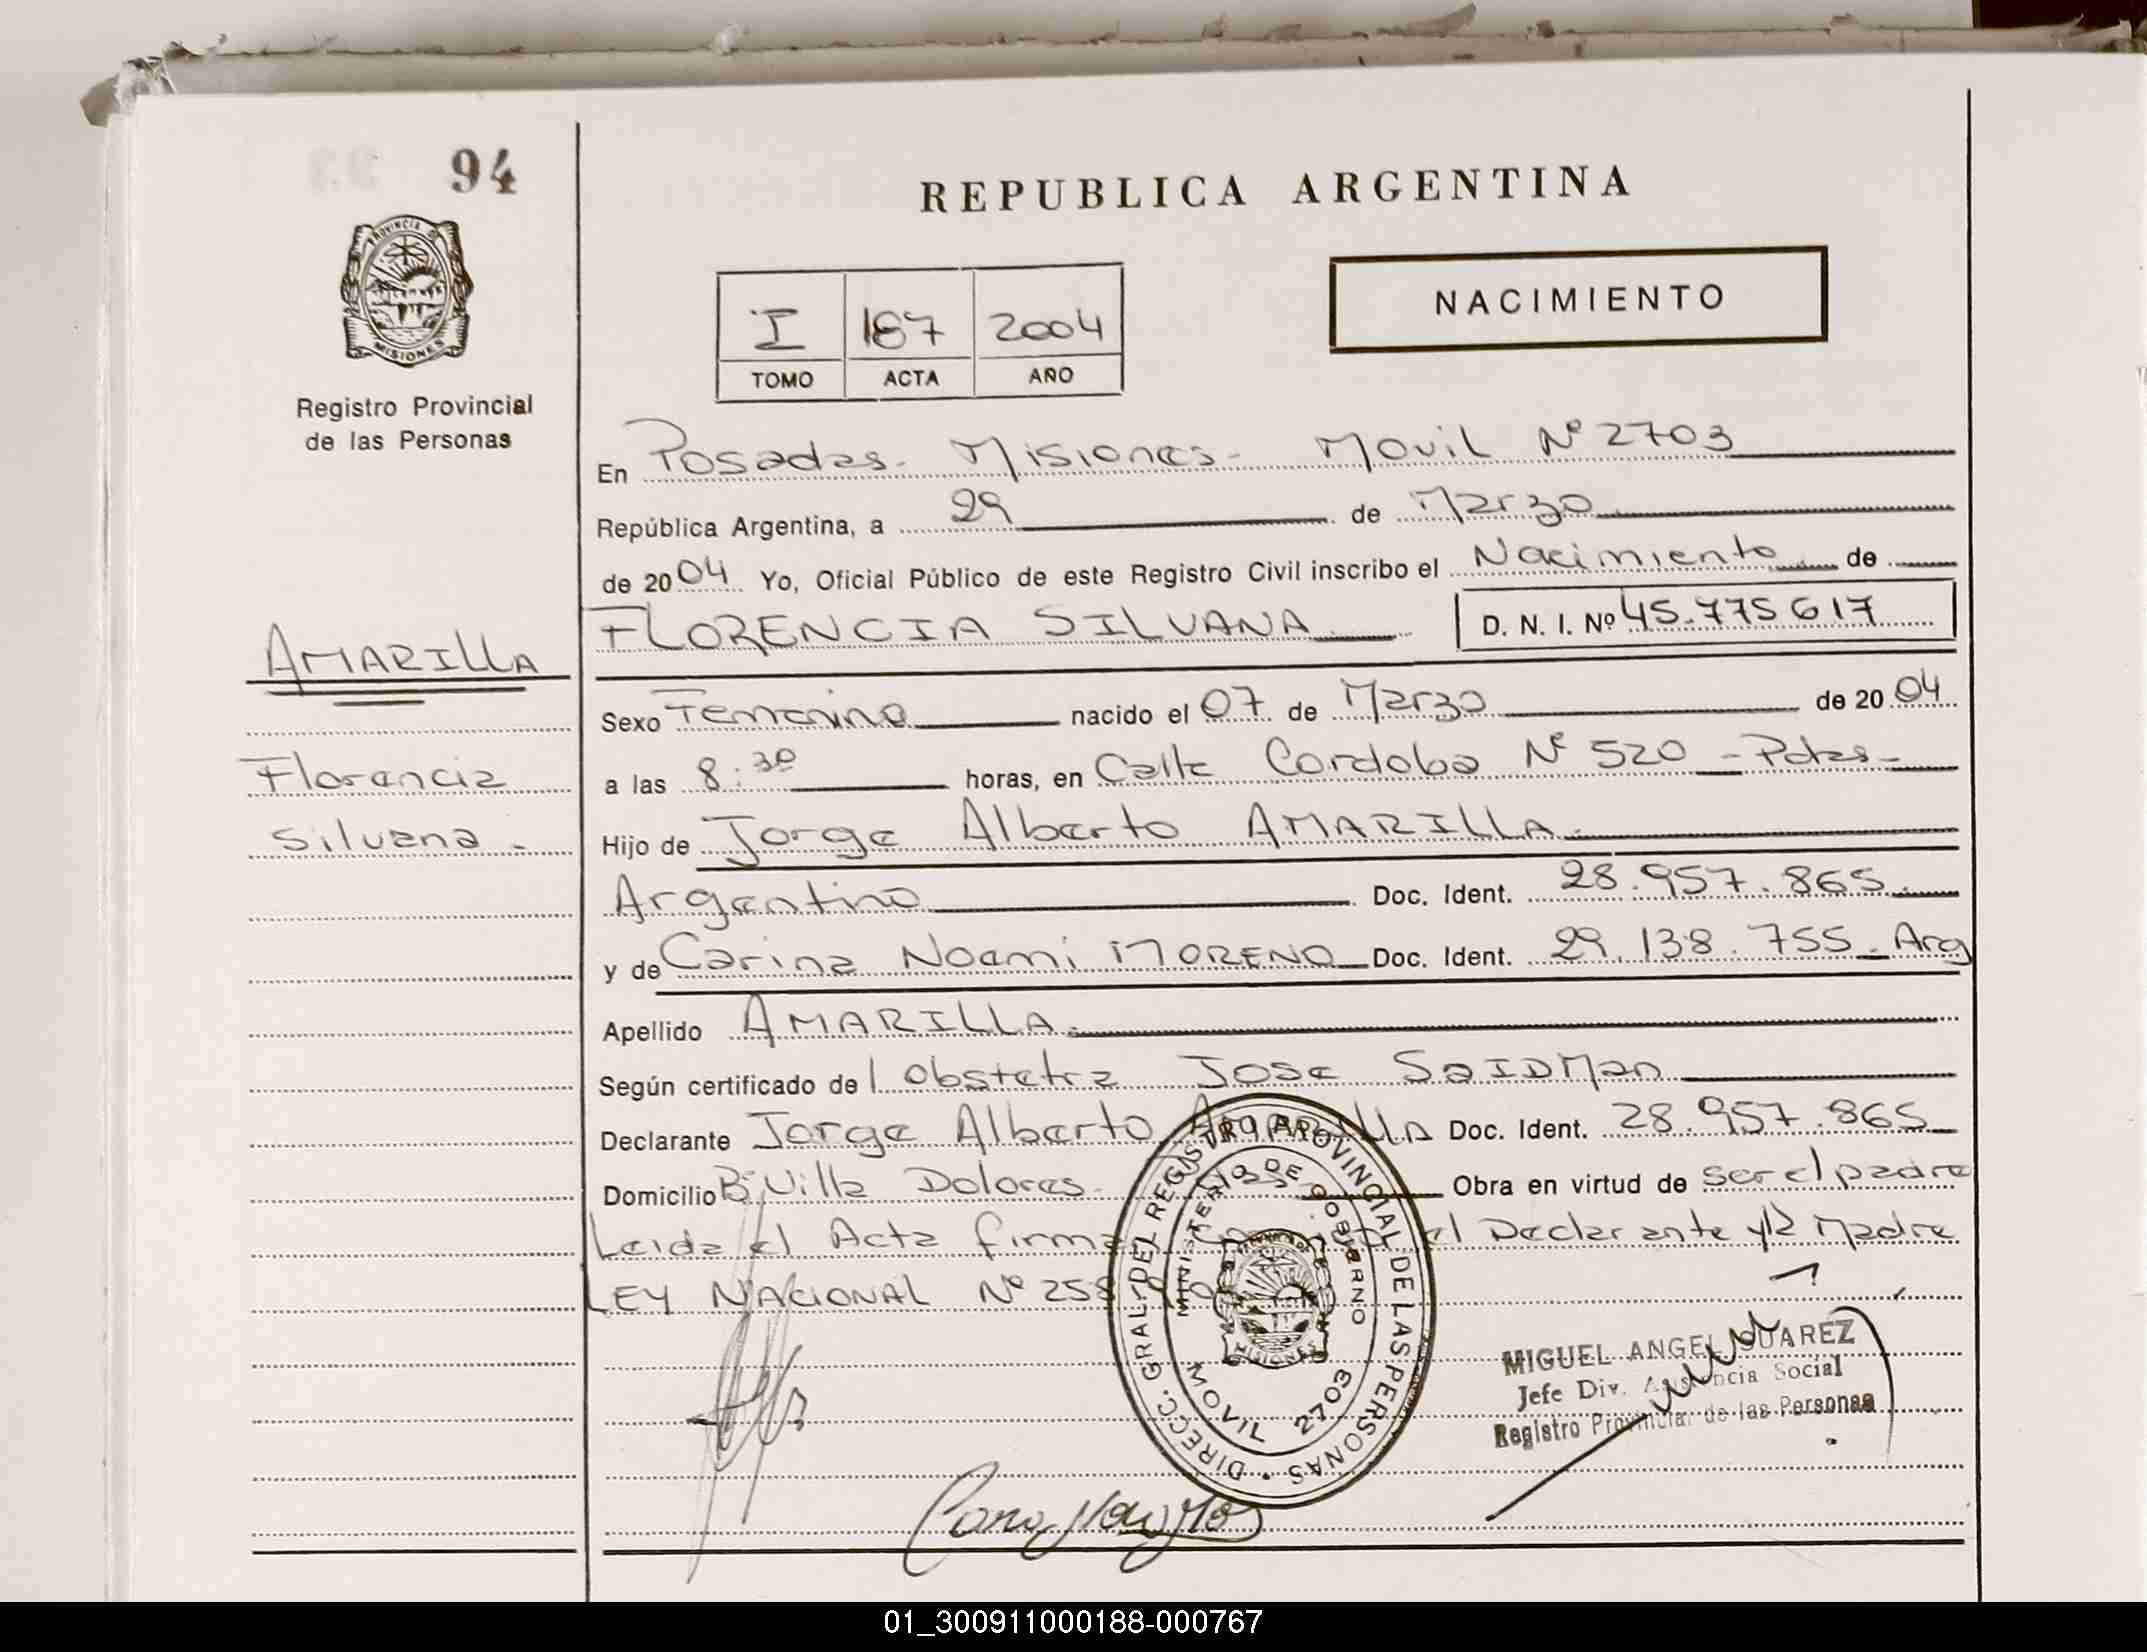 94
PROVINCIA DE
MISIONES
Registro Provincial
de las Personas
AMARILLA
Florencia
Silvana -
REPUBLICA ARGENTINA
NACIMIENTO
I 187 2004
TOMO ACTA AÑO
En Posadas - Misiones - Movil Nº 2703
República Argentina, a 29 de Marzo
de 2004 Yo, Oficial Público de este Registro Civil inscribo el Nacimiento de
FLORENCIA SILVANA D. N. I. Nº 45.775617
Sexo Femenino nacido el 07 de Marzo de 2004
a las 8:30 horas, en Calle Cordoba Nº 520 - Pdas -
Hijo de Jorge Alberto AMARILLA
Argentino Doc. Ident. 28.957.865
y de Carina Noemi MORENO Doc. Ident. 29.138.755 - Arg
Apellido AMARILLA
Según certificado del Obstetra Jose SaIDMan
Declarante Jorge Alberto Amarilla Doc. Ident. 28.957.865
Domicilio Bº Villa Dolores - Obra en virtud de ser el padre
Leida el Acta firma el Declarante y la Madre
LEY NACIONAL Nº 258
DIRECC. GRAL. DEL REGISTRO PROVINCIAL DE LAS PERSONAS
MINISTERIO DE GOBIERNO
MISIONES
MOVIL 2703
MIGUEL ANGEL SUAREZ
Jefe Div. Asistencia Social
Registro Provincial de las Personas
01_300911000188-000767